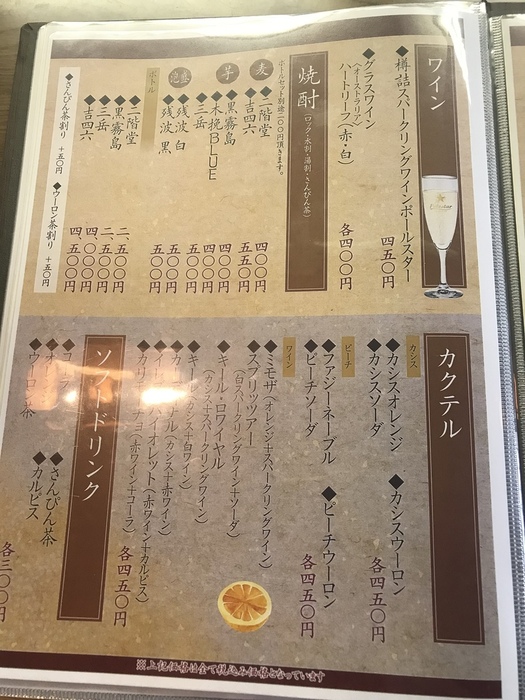 ワイン
◆樽詰スパークリングワインポールスター 四五〇円
◆グラスワイン
(オーストラリアン)
ハートリーフ(赤・白) 各四〇〇円
焼酎(ロック・水割・湯割・さんぴん茶)
ボールセット別途二〇〇円頂きます。
麦
◆二階堂 四〇〇円
◆吉四六 五五〇円
芋
◆黒霧島 四〇〇円
◆木挽BLUE 四〇〇円
◆三岳 五〇〇円
泡盛
◆残波 白 五〇〇円
◆残波 黒 五〇〇円
ボトル
◆二階堂 二、五〇〇円
◆黒霧島 二、五〇〇円
◆三岳 四、〇〇〇円
◆吉四六 四、五〇〇円
◆さんぴん茶割り +五〇円 ◆ウーロン茶割り +五〇円
カクテル
カシス
◆カシスオレンジ ◆カシスウーロン
◆カシスソーダ 各四五〇円
ピーチ
◆ファジーネーブル ◆ピーチウーロン
◆ピーチソーダ 各四五〇円
ワイン
◆ミモザ(オレンジ+スパークリングワイン)
◆スプリッツァー
(白スパークリングワイン+ソーダ)
◆キール・ロワイヤル
(カシス+スパークリングワイン)
◆キール(カシス+白ワイン)
◆カーディナル(カシス+赤ワイン)
バイオレット(赤ワイン+カルピス)
◆カリモーチョ(赤ワイン+コーラ) 各四五〇円
ソフトドリンク
◆コーラ ◆さんぴん茶
◆カルピス
◆ウーロン茶 各三〇〇円
※上記価格は全て税込み価格となっています